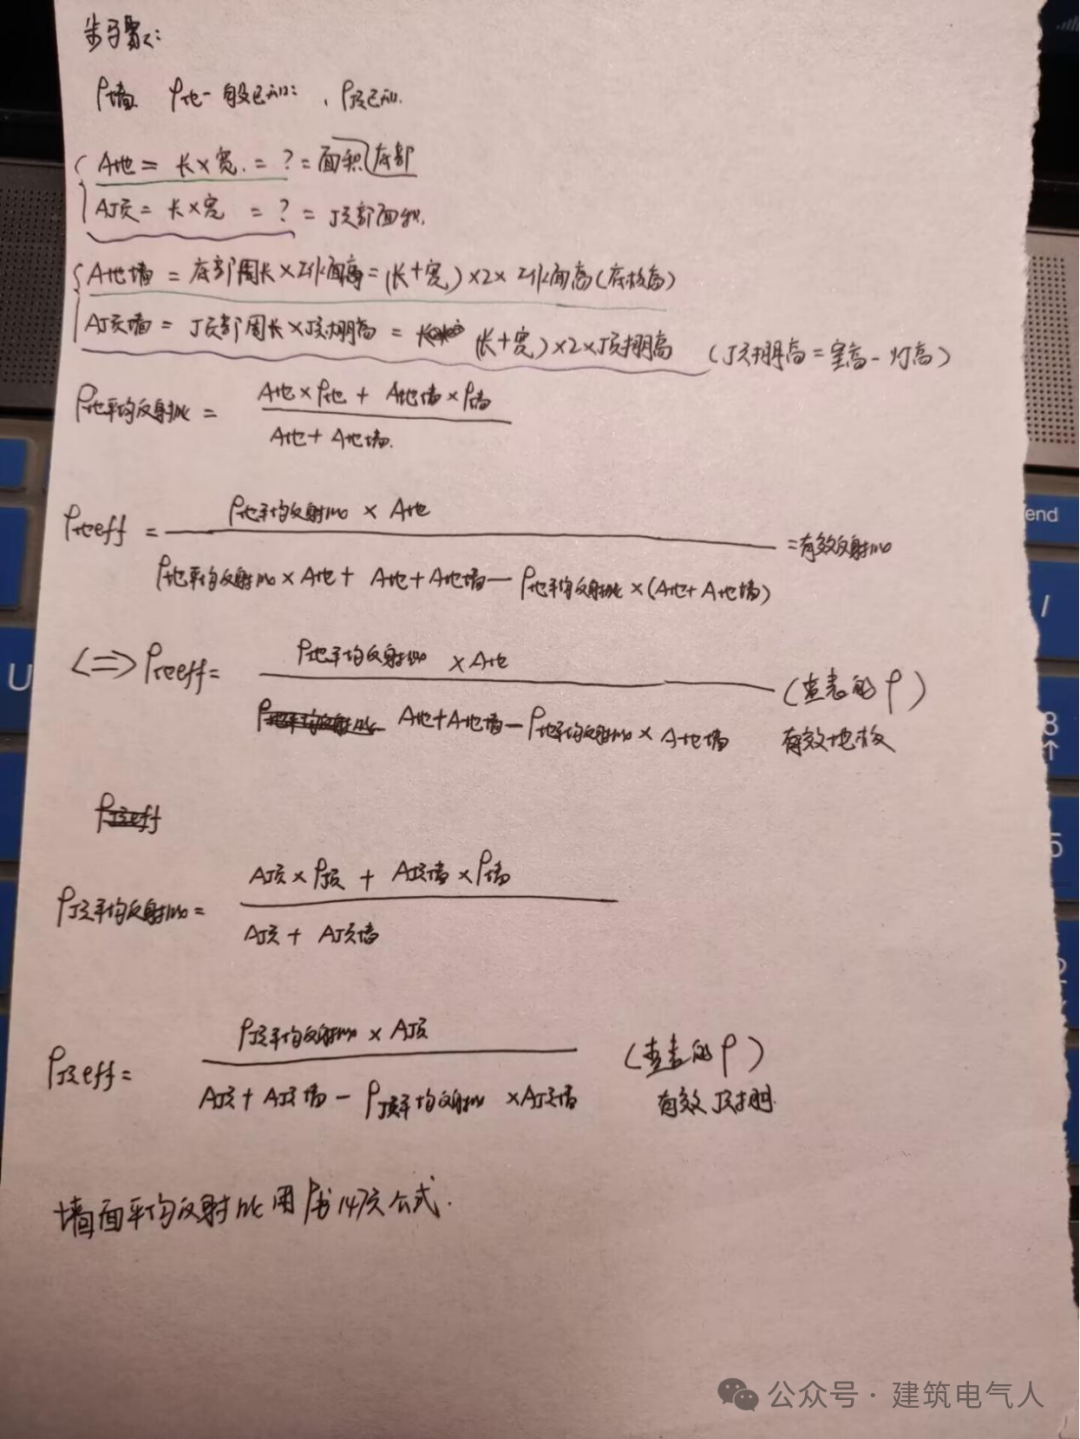 步骤:
ρ墙 ρ地一般已知: , ρ顶已知.
A地 = 长×宽. = ? = 面积 底部
A顶 = 长×宽 = ? = 顶部面积.
A地墙 = 底部周长×工作面高 = (长+宽)×2× 工作面高(底板高)
A顶墙 = 顶部周长×顶棚高 = (长+宽)×2×顶棚高 (顶棚高=室高-灯高)
ρ地平均反射比 = A地×ρ地 + A地墙×ρ墙
A地+A地墙.
ρ地eff = ρ地平均反射比 × A地 =有效反射比
ρ地平均反射比×A地+ A地+A地墙-ρ地平均反射比×(A地+A地墙)
<=> ρ地eff= ρ地平均反射比 ×A地 (查表的ρ)
A地+A地墙-ρ地平均反射比×A地墙 有效地板
ρ顶eff
ρ顶平均反射比= A顶×ρ顶 + A顶墙×ρ墙
A顶+ A顶墙
ρ顶eff= ρ顶平均反射比×A顶 (查表的ρ)
A顶+A顶墙-ρ顶平均反射比 ×A顶墙 有效顶棚
墙面平均反射比用 书147页公式.
公众号·建筑电气人
end
U